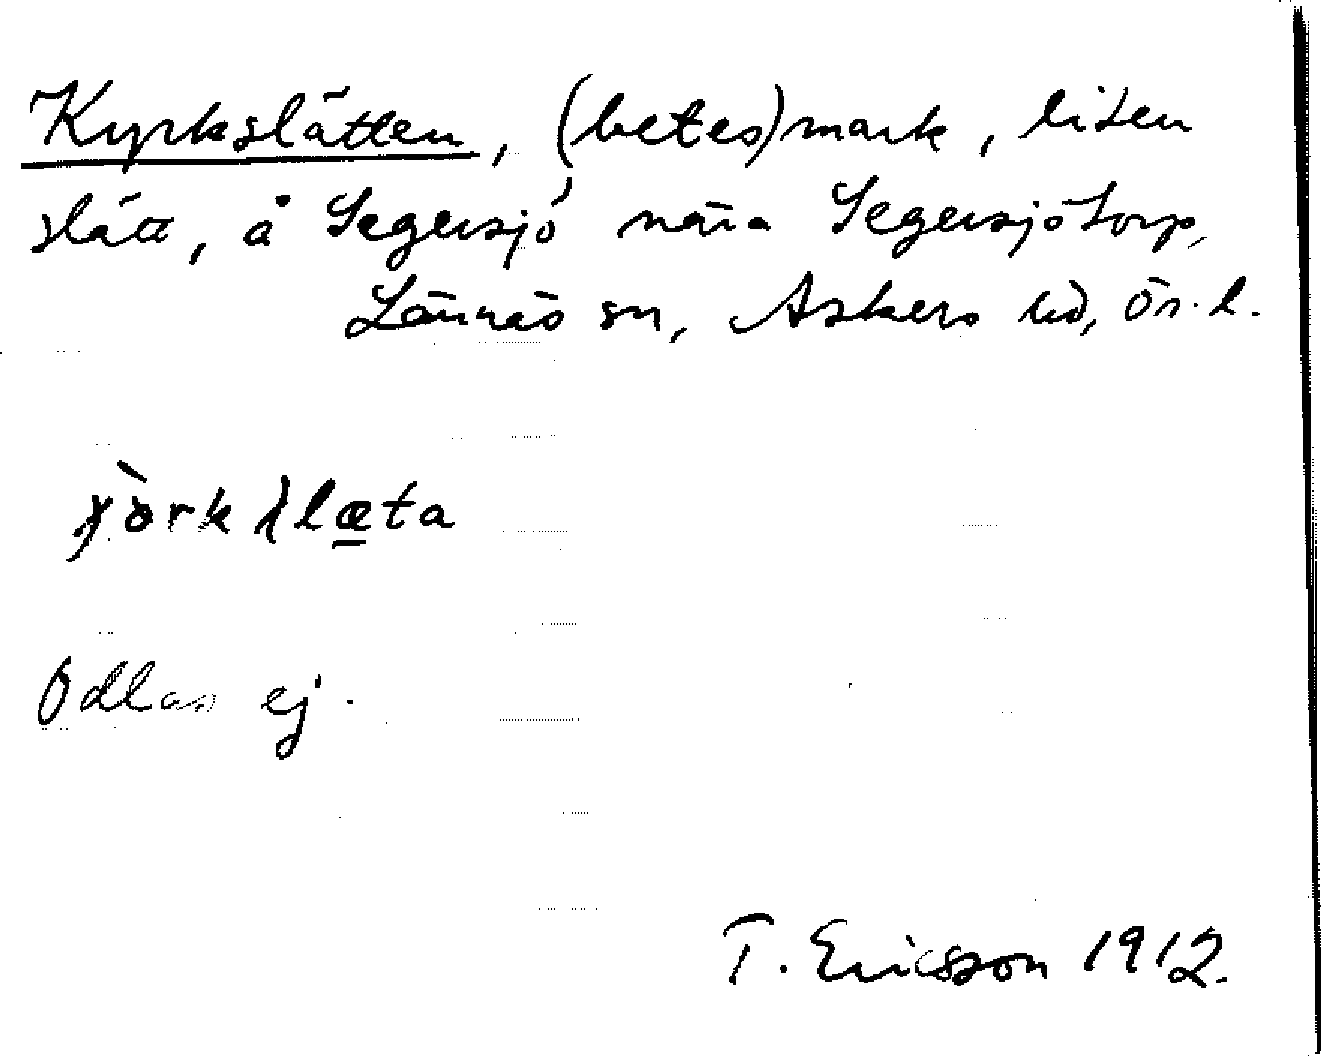 Kyrkslätten, (betes)mark, liten
slätt, å Segersjö nära Segersjötorp,
Lännäs sn, Askers hd, Ör. l.
Odlas ej.
T. Ericsson 1912.